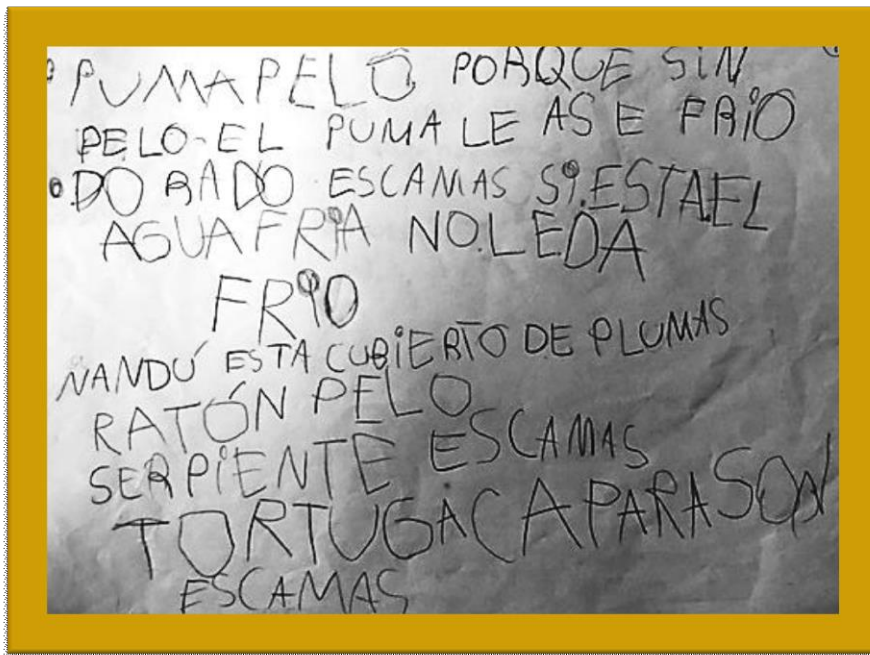 PUMA PELO PORQUE SIN
PELO-EL PUMA LE ASE FRiO
DORADO ESCAMAS Si.ESTA EL
AGUA FRiA NO.LE DA
FRiO
NANDÚ ESTA CUBiERTO DE PLUMAS
RATÓN PELO
SERPiENTE ESCAMAS
TORTUGA CAPARASON
ESCAMAS